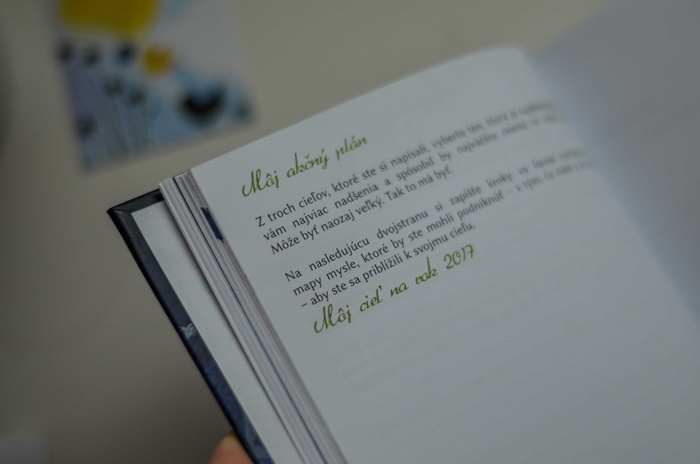 Môj akčný plán
Z troch cieľov, ktoré ste si napísali, vyberte ten, ktorý
vám najviac nadšenia a spôsobil by najväčšiu
Môže byť naozaj veľký. Tak to má byť.
Na nasledujúcu dvojstranu si zapíšte kroky vo forme
mapy mysle, ktoré by ste mohli podniknúť – s tým,
– aby ste sa priblížili k svojmu cieľu.
Môj cieľ na rok 2017